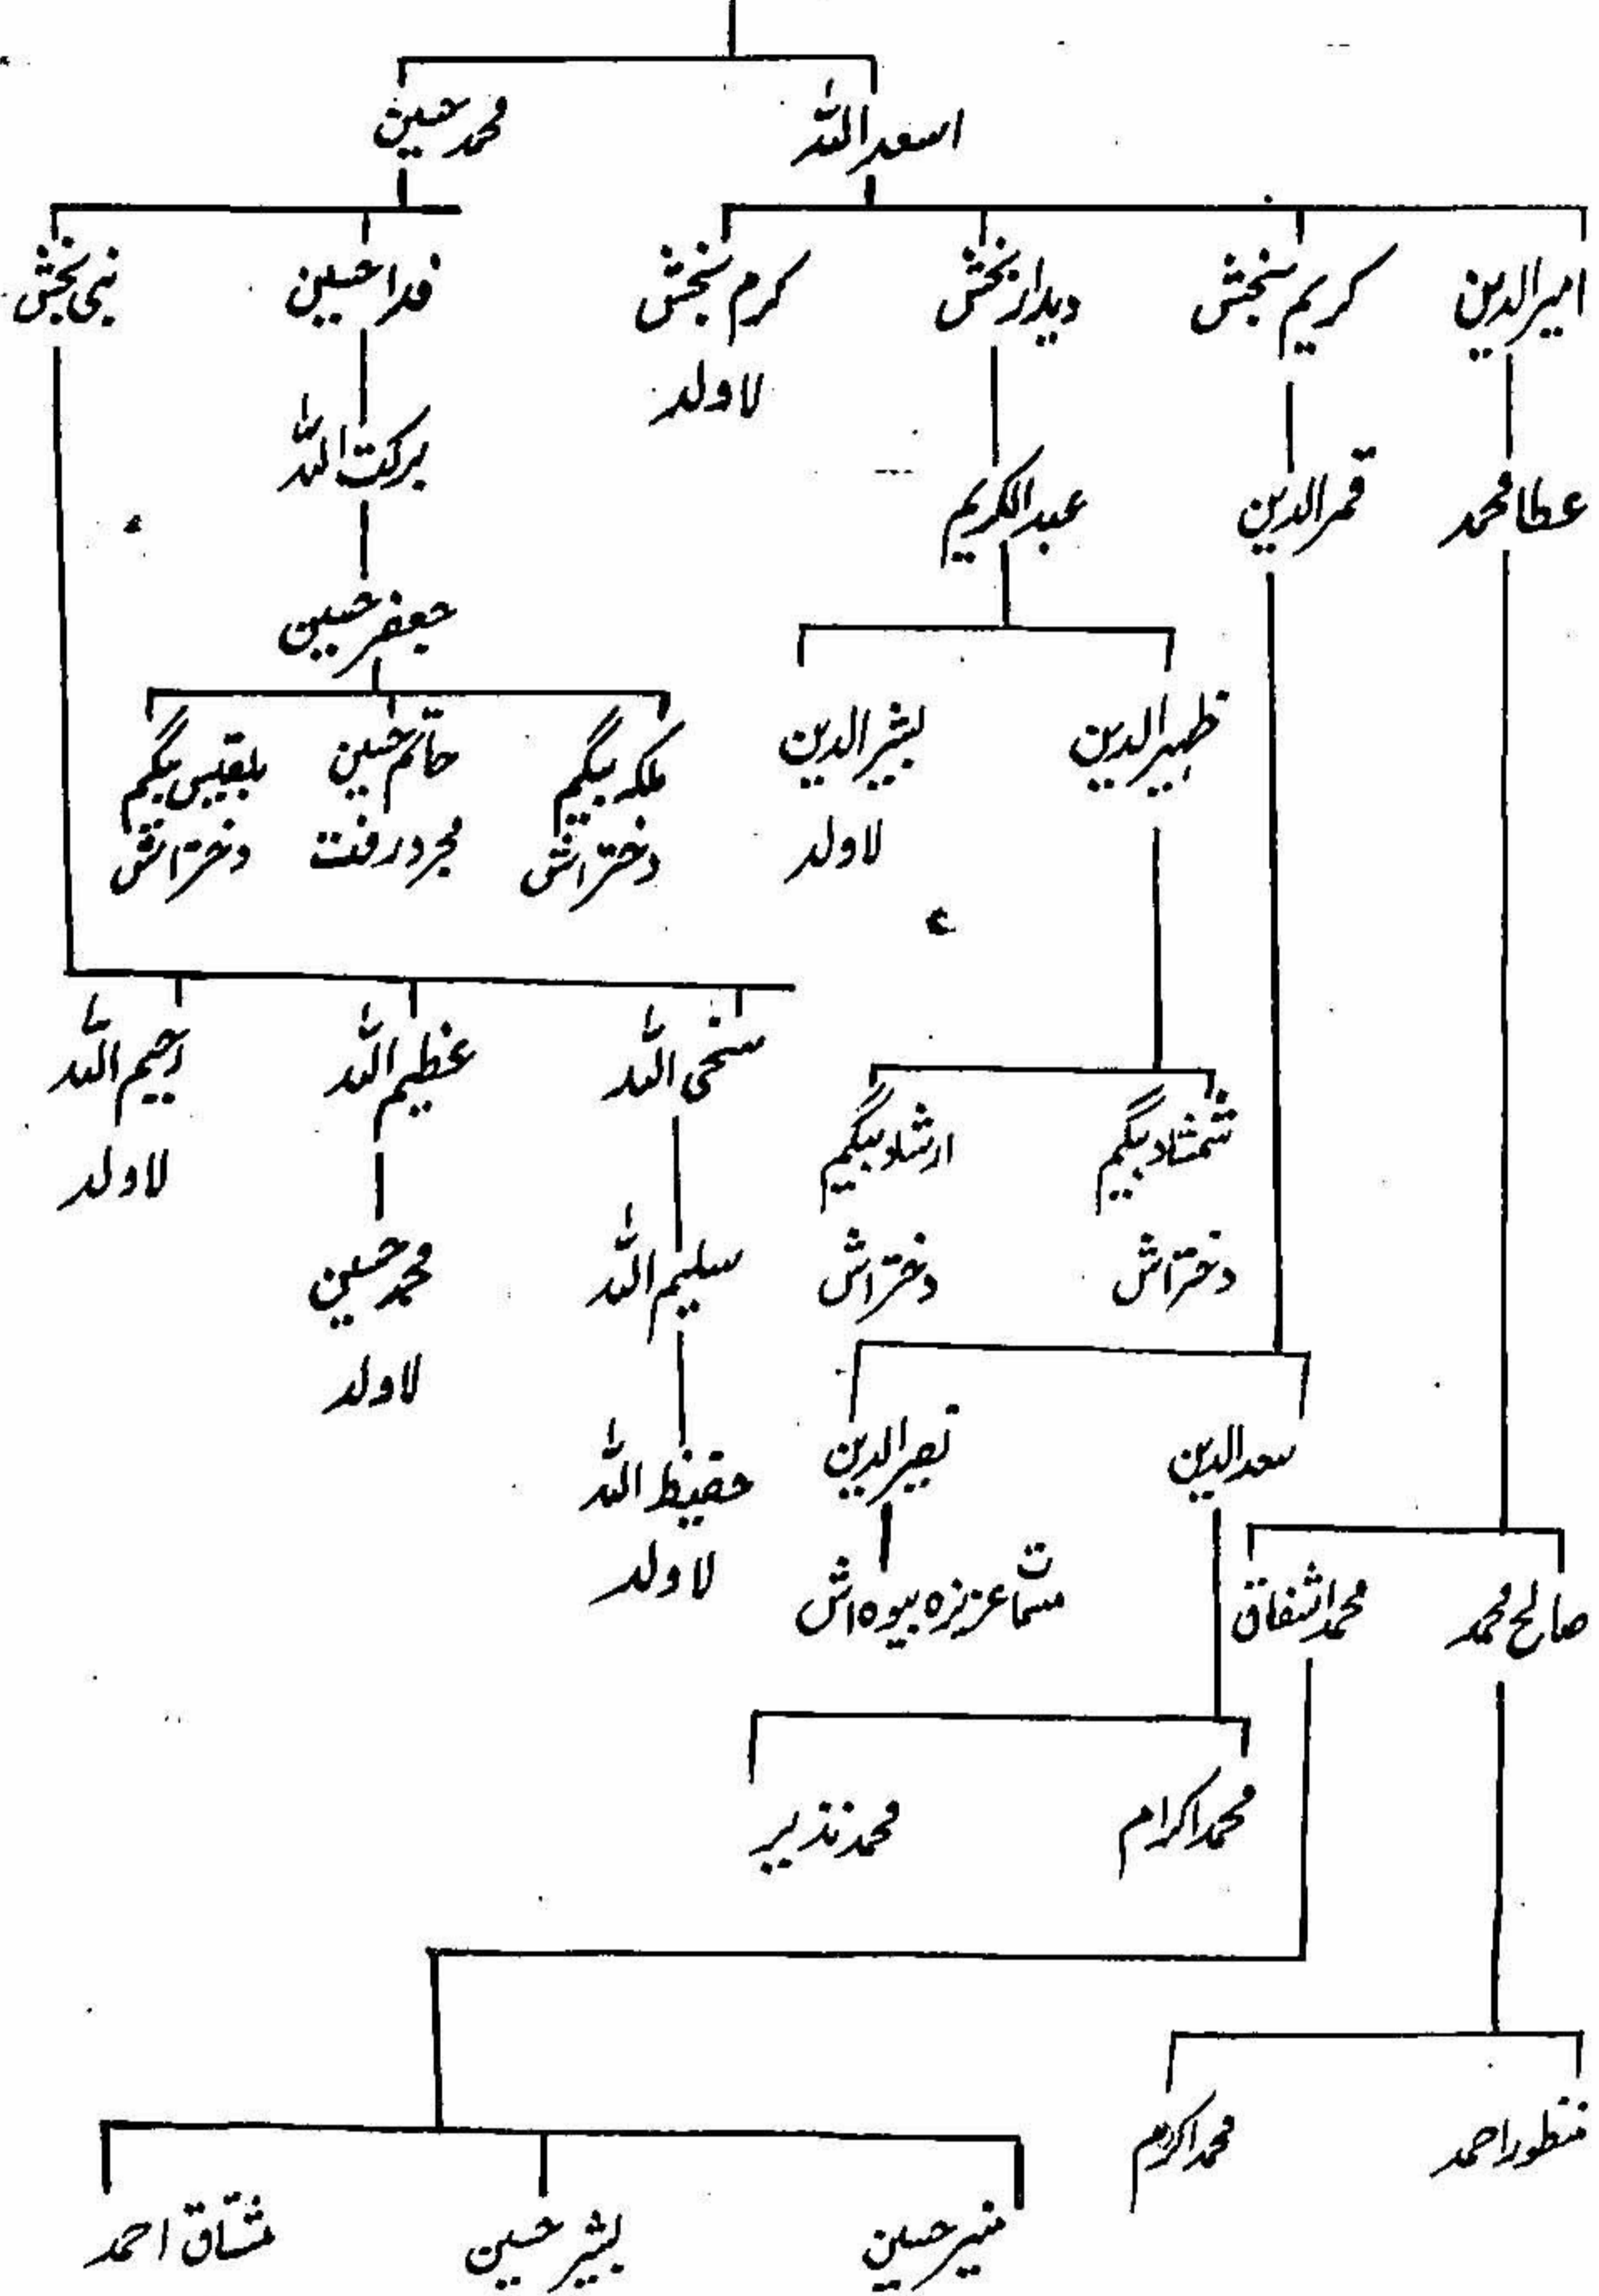 اسعد اللہ
محمد حسین
امیر الدین
کریم بخش
دیدار بخش
کرم بخش
لاولد
فدا حسین
نبی بخش
عطا محمد
قمر الدین
عبدالکریم
برکت اللہ
جعفر حسین
ظہیر الدین
بشیر الدین
لاولد
ملکہ بیگم
دختراش
حاتم حسین
مجرد رفت
بلقیس بیگم
دختراش
سخی اللہ
عظیم اللہ
رحیم اللہ
لاولد
شمشاد بیگم
دختراش
ارشاد بیگم
دختراش
سلیم اللہ
محمد حسین
لاولد
سعد الدین
نصیر الدین
حفیظ اللہ
لاولد
صالح محمد
محمد اشفاق
مسمات عزیزہ بیوہ اش
محمد اکرام
محمد نذیر
منظور احمد
محمد اکرم
منیر حسین
بشیر حسین
مشتاق احمد